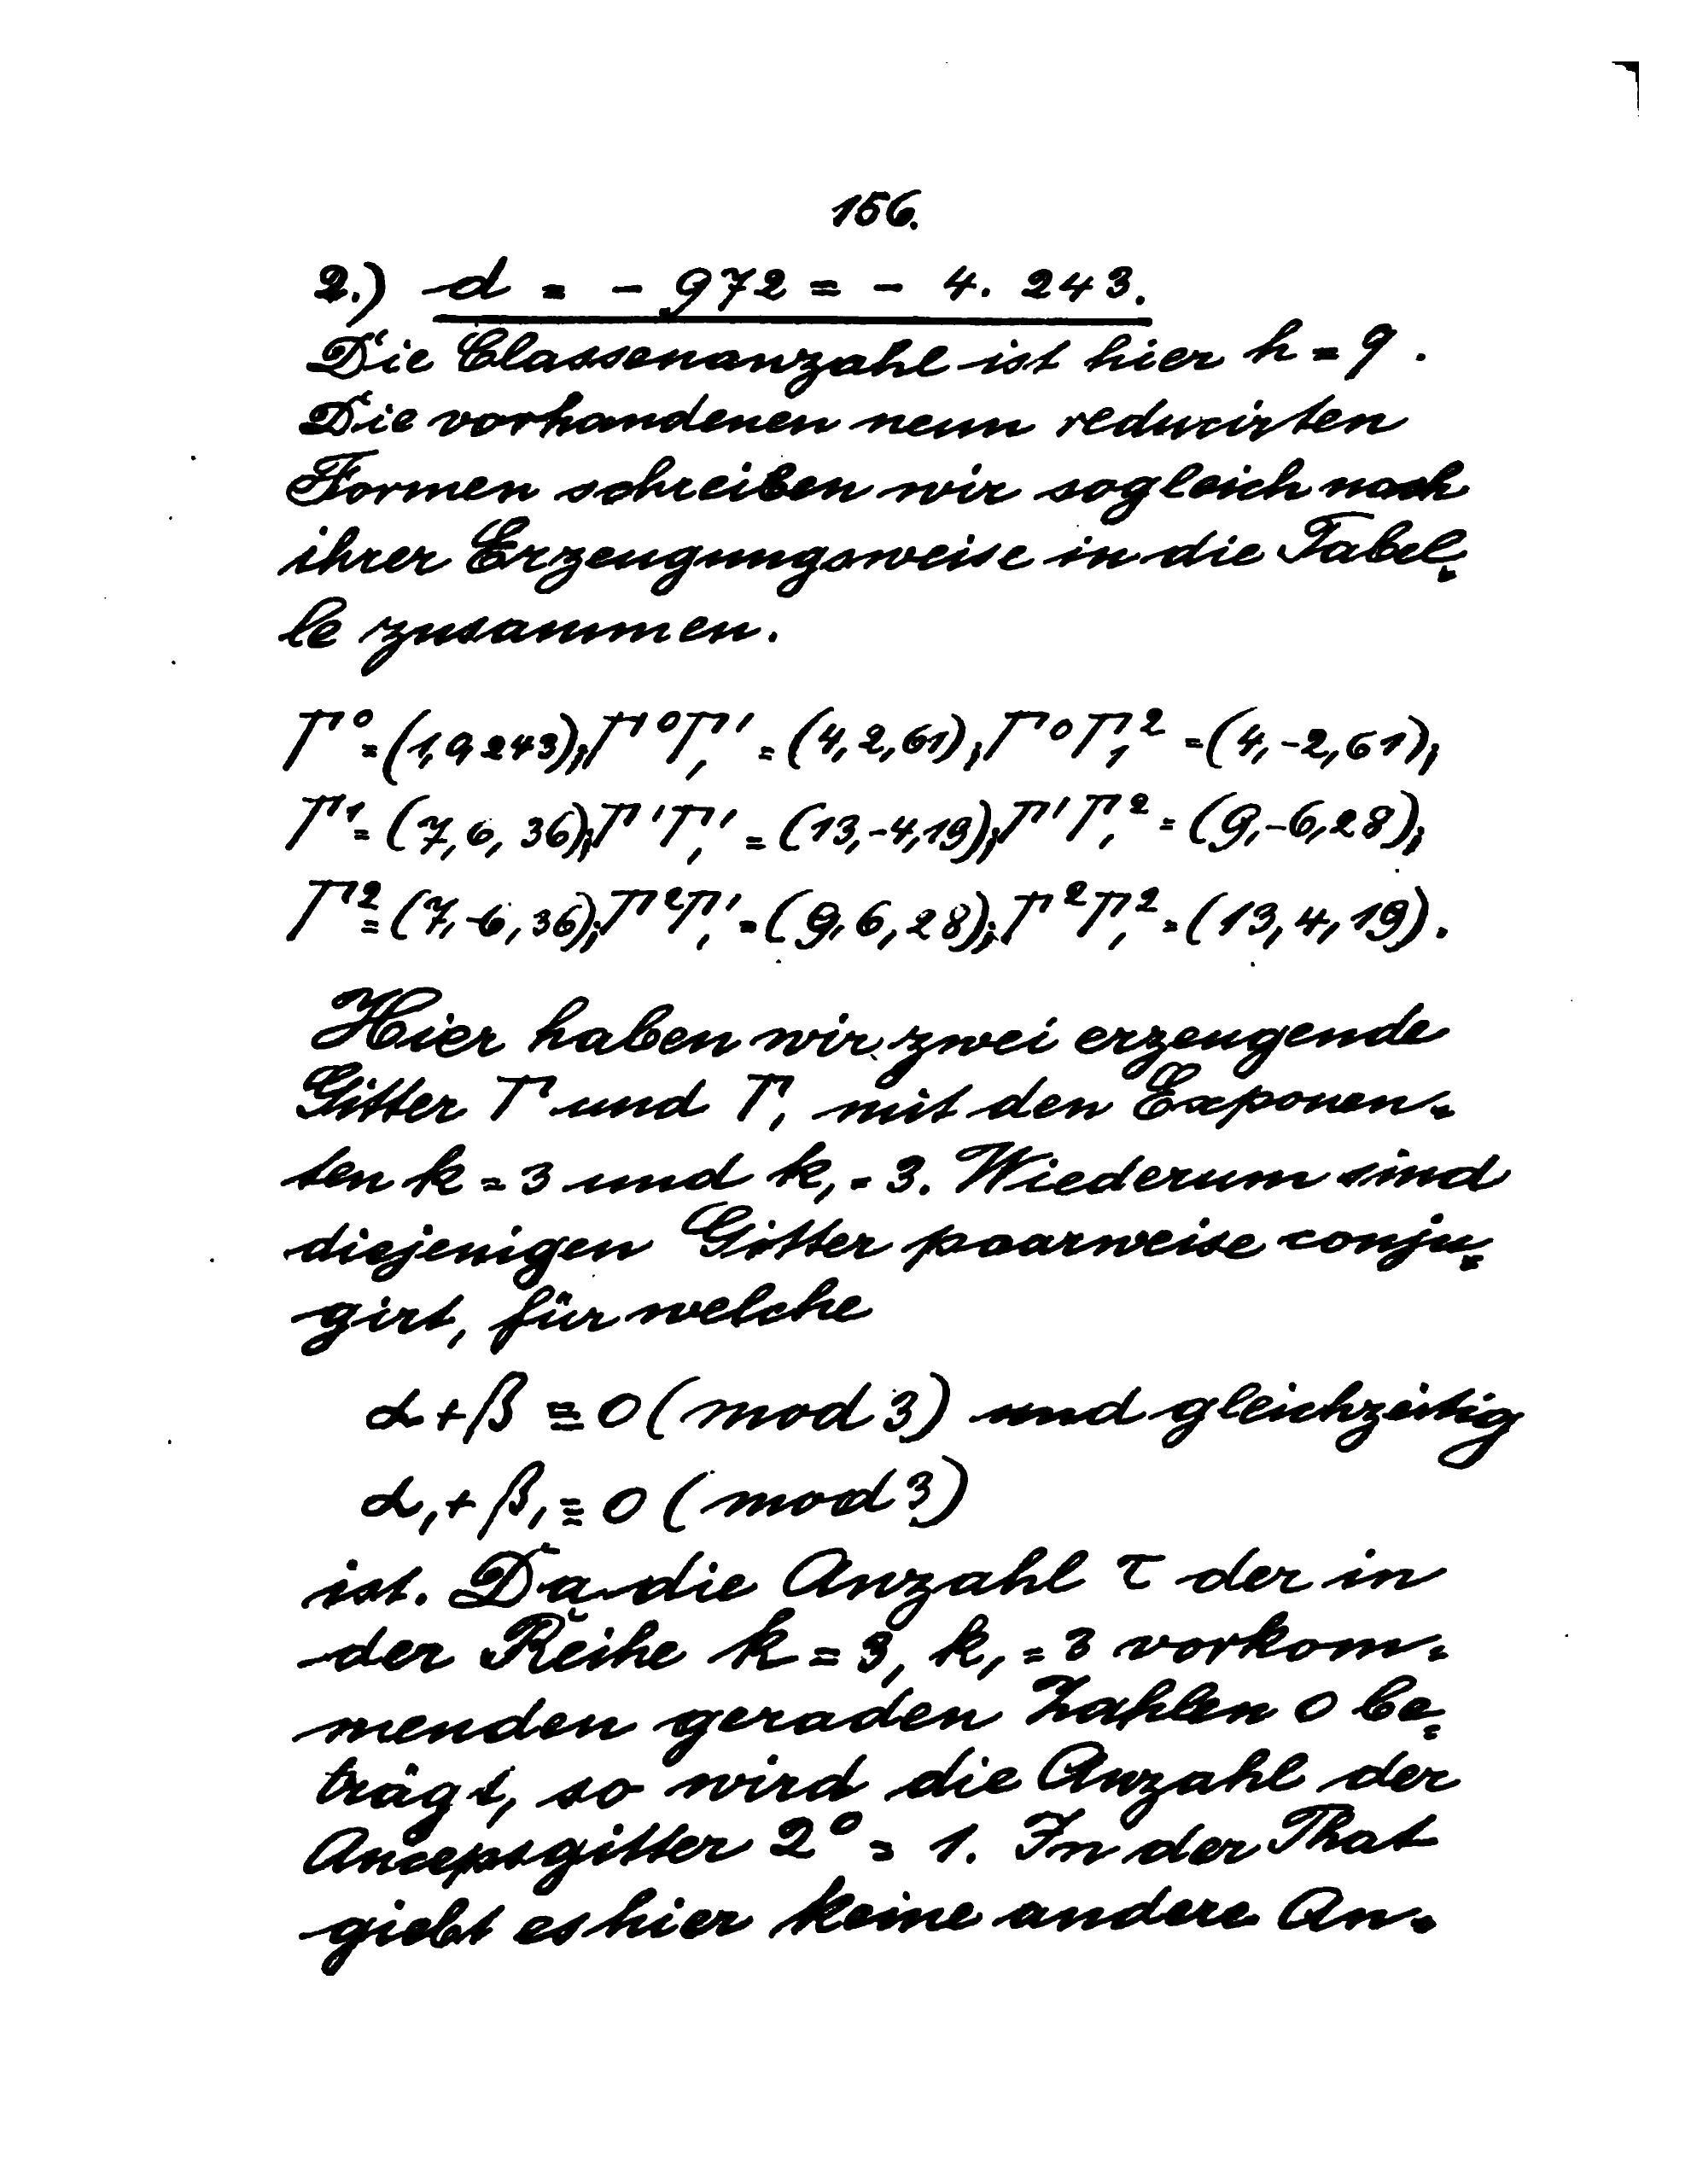 156.
2.) d = - 972 = - 4. 243.
Die Classenanzahl ist hier h = 9.
Die vorhandenen neun reducirten
Formen schreiben wir sogleich nach
ihrer Erzeugungsweise in die Tabel-
le zusammen.
Γ⁰ = (1,0,243); Γ⁰Γ₁' = (4,2,61); Γ⁰Γ₁² = (4,-2,61);
Γ¹ = (7,6,36); Γ'Γ₁' = (13,-4,19); Γ'Γ₁² = (9,-6,28);
Γ² = (7,-6,36); Γ²Γ₁' = (9,6,28); Γ²Γ₁² = (13,4,19).
Hier haben wir zwei erzeugende
Gitter Γ und Γ₁ mit den Exponen-
ten k = 3 und k₁ = 3. Wiederum sind
diejenigen Gitter paarweise conju-
girt, für welche
α + β ≡ 0 (mod 3) und gleichzeitig
α₁ + β₁ ≡ 0 (mod 3)
ist. Da die Anzahl τ der in
der Reihe k = 3, k₁ = 3 vorkom-
menden geraden Zahlen 0 be-
trägt, so wird die Anzahl der
Ancepsgitter 2⁰ = 1. In der That
giebt es hier keine andere An-